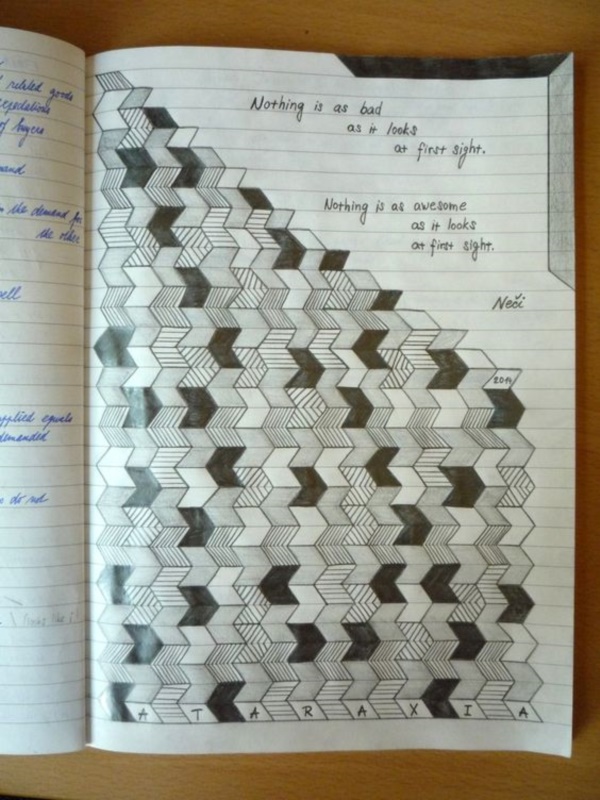 related goods
of buyers
in the demand for
the other
applied equals
demanded
do not
Nothing is as bad
as it looks
at first sight.
Nothing is as awesome
as it looks
at first sight.
Neči
2014
A T A R A X I A